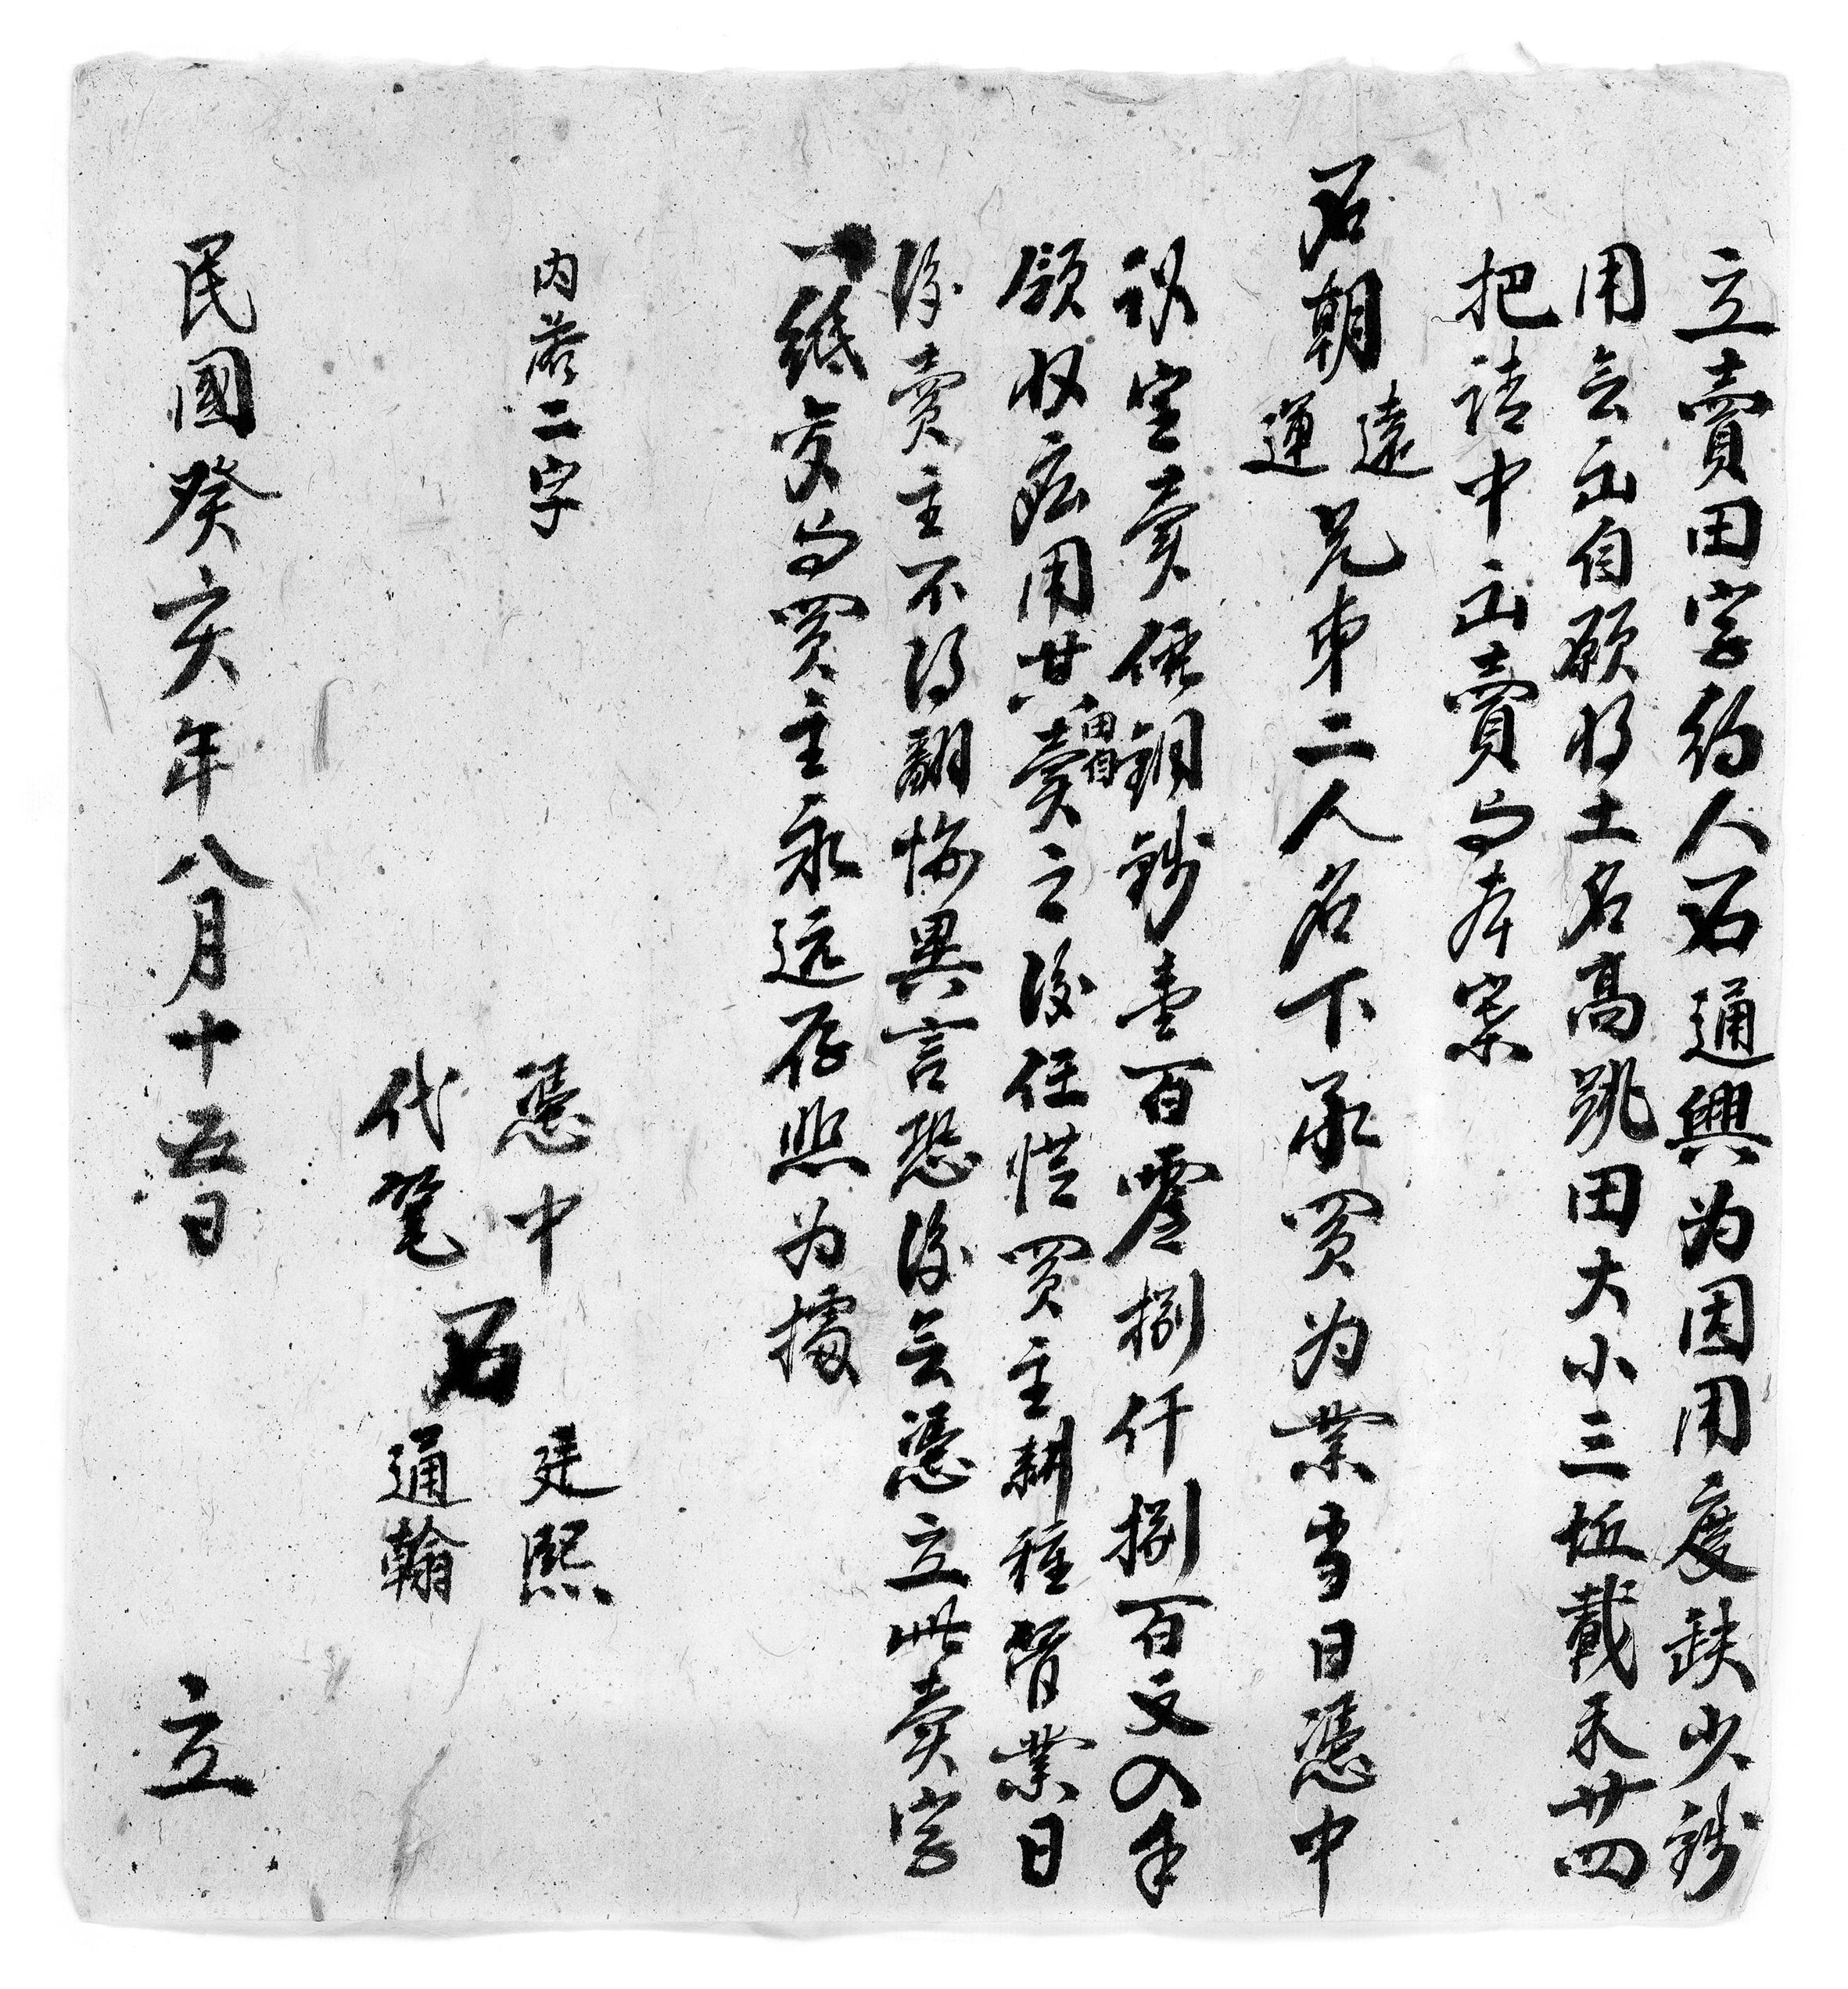 立賣田字約人石通興为因用度缺少錢
用无出自願将土名高跳田大小三坵載禾廿四
把請中出賣与本寨
石朝遠運兄弟二人名下承買为業当日憑中
議定賣價銅錢壹百零捌仟捌百文入手
領收应用其田自賣之後任從買主耕種管業日
後賣主不得翻悔異言恐後无憑立此賣字
一紙交与買主永远存照为據
内添二字
憑中 石 廷熙
代筆 通翰
民國癸亥年八月十五日 立